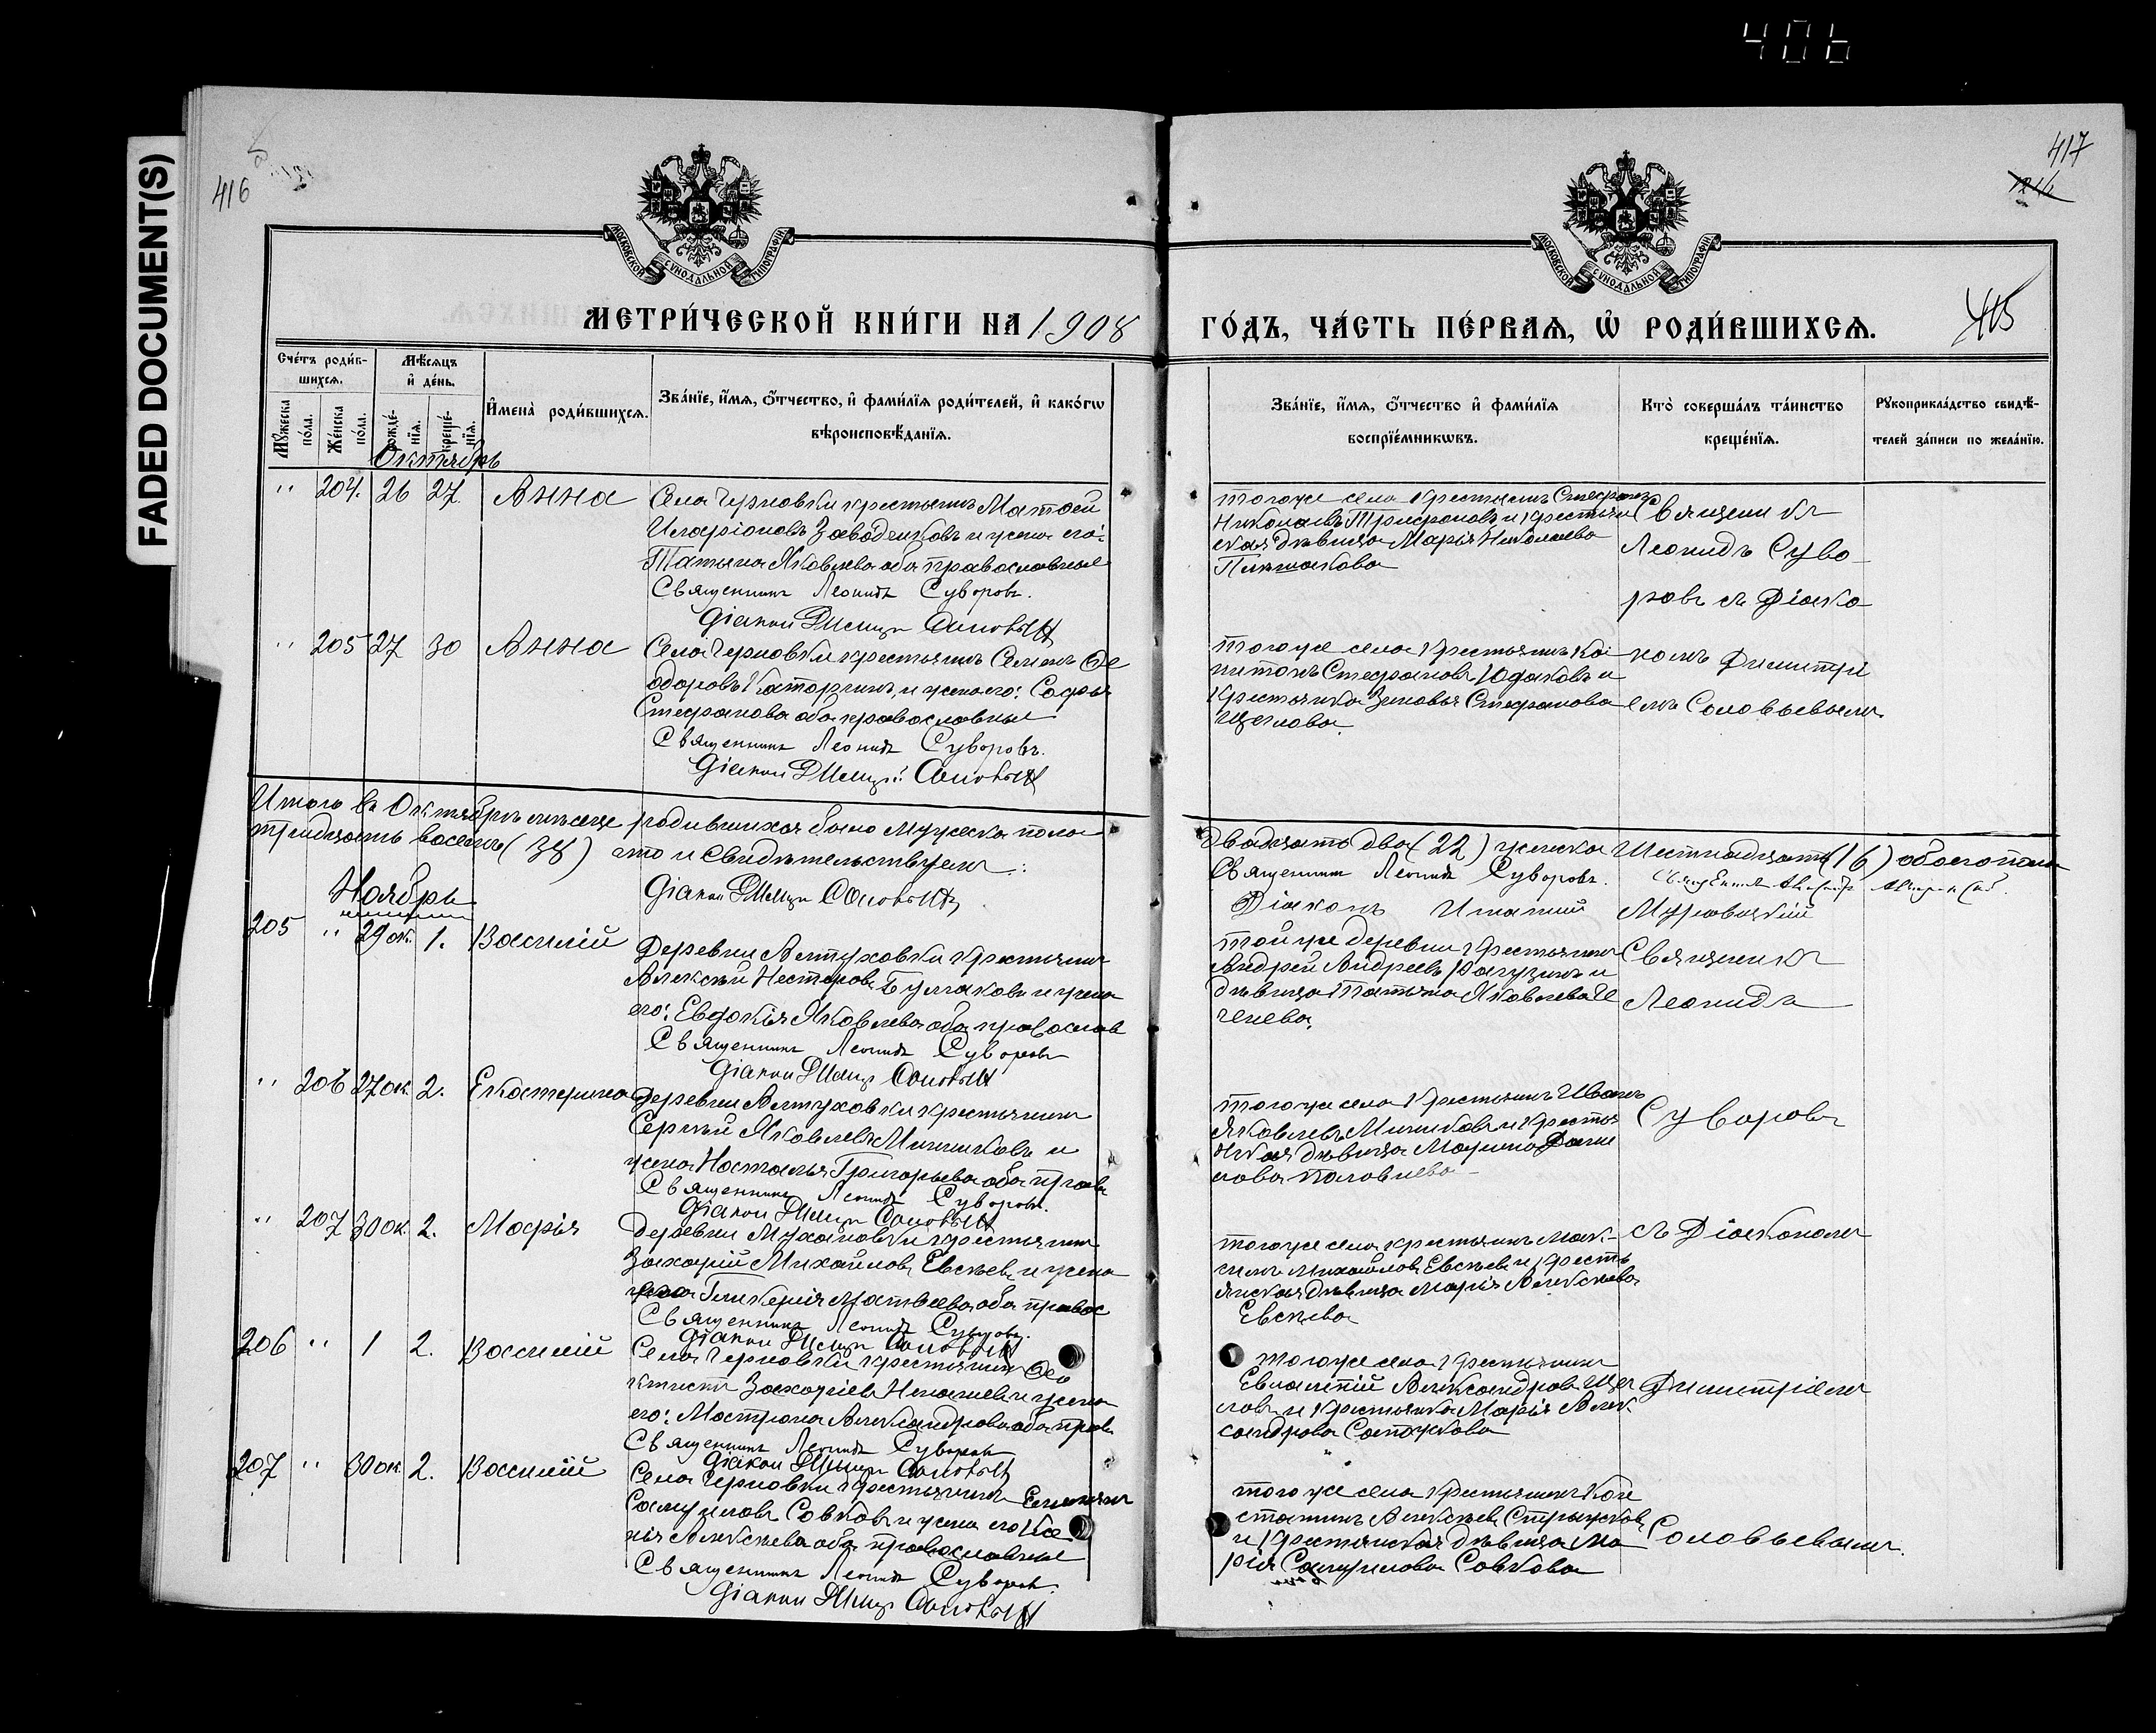 406
FADED DOCUMENT(S)
416
417
415
МОСКОВСКОЙ СѴНОДАЛЬНОЙ ТИПОГРАФІИ
МОСКОВСКОЙ СѴНОДАЛЬНОЙ ТИПОГРАФІИ
МЕТРИ́ЧЕСКОЙ КНИ́ГИ НА 1908
ГО́ДЪ, ЧА́СТЬ ПЕ́РВАѦ, Ѡ РОДИ́ВШИХСѦ.
Сче́тъ роди́в-
шихсѧ.
Мꙋ́жеска по́ла.
Же́нска по́ла.
Мѣ́сѧцъ
и҆ де́нь.
рожде́-нїѧ.
креще́-нїѧ.
И҆мена̀ роди́вшихсѧ.
Зва́нїе, и҆́мѧ, ѻ҆́тчество, и҆ фами́лїѧ роди́телей, и҆ како́гѡ
вѣроисповѣ́данїѧ.
Зва́нїе, и҆́мѧ, ѻ҆́тчество и҆ фами́лїѧ
воспрїе́мникѡвъ.
Кто̀ соверша́лъ та́инство
креще́нїѧ.
Рꙋкоприкла́дство свидѣ́-
телей за́писи по жела́нїю.
Октябрь
" 204. 26 27. Анна
Села Черновки крестьянинъ Матѳей
Иларіоновъ Заводчиковъ и жена его:
Татьяна Яковлева оба православные
Священникъ Леонидъ Суворовъ.
Діаконъ Димитрій Соловьевъ
тогоже села крестьянинъ Стефанъ
Николаевъ Трифоновъ и крестьян
ская дѣвица Марія Николаева
Священникъ
Леонидъ Суво-
ровъ съ Діако
" 205 27 30 Анна
Села Черновки крестьянинъ Семенъ Ѳе
одоровъ Каторгинъ, и жена его: Софья
Стефанова оба православные
Священникъ Леонидъ Суворовъ.
Діаконъ Димитрій Соловьевъ
тогоже села крестьянинъ Ка
питонъ Стефановъ Юдаковъ и
крестьянка Зиновья Стефанова
Щеглова.
номъ Димитрі
емъ Соловьевымъ.
Итого въ Октябрѣ мѣсяце родившихся было Мужеска пола
двадцать два (22) женска Шестнадцать (16) обоего пола
тридцать восемь (38) что и свидѣтельствуемъ:
Священникъ Леонидъ Суворовъ.
Діаконъ Димитрій Соловьевъ
Діаконъ
Ноябрь
205 " 29 ок. 1. Василій
Деревни Алтуховки крестьянинъ
Алексѣй Нестеровъ Бурлаковъ и жена
его: Евдокія Яковлева оба православ
Священникъ Леонидъ Суворовъ
Діаконъ Димитрій Соловьевъ
той же деревни крестьянинъ
Андрей Андреевъ Рагузинъ и
дѣвица Татьяна Яковлева
Священникъ
Леонидъ
" 206 27 ок. 2. Екатерина
Деревни Алтуховки крестьянинъ
Сергѣй Яковлевъ Минниковъ и
жена Наталья Григорьева оба прав
Священникъ Леонидъ Суворовъ.
Діаконъ Димитрій Соловьевъ
тогоже села крестьянинъ Иванъ
Яковлевъ Минниковъ и крестья
нская дѣвица Марина Дани
лова Половнева
Суворовъ
" 207 30 ок. 2. Марія
Деревни Мухановки крестьянинъ
Захарій Михайловъ Евсѣевъ и жена
Гликерія Матвѣева оба правос
Священникъ Леонидъ Суворовъ.
Діаконъ Димитрій Соловьевъ
тогоже села крестьянинъ Мак-
симъ Михайловъ Евсѣевъ и кресть
янская дѣвица Марія Алексѣева
Евсѣева
съ Діакономъ
206 " 1 2. Василій
Села Черновки крестьянинъ Ѳео
ктистъ Захаріевъ Ненашевъ и жена
его: Матрона Александрова оба прав
Священникъ Леонидъ Суворовъ
Діаконъ Димитрій Соловьевъ
тогоже села крестьянинъ
Евлампій Александровъ Щег
ловъ и крестьянка Марія Алек
сандрова
Димитріемъ
207 " 30 ок. 2. Василій
Села Черновки крестьянинъ
Самуиловъ Совковъ и жена его Ксе
нія Алексѣева оба православные
Священникъ Леонидъ Суворовъ.
Діаконъ Димитрій Соловьевъ
тогоже села крестьянинъ Кон
стантинъ Алексѣевъ Стрыжковъ
и крестьянская дѣвица Ма
рія Самуилова Совкова
Соловьевымъ.